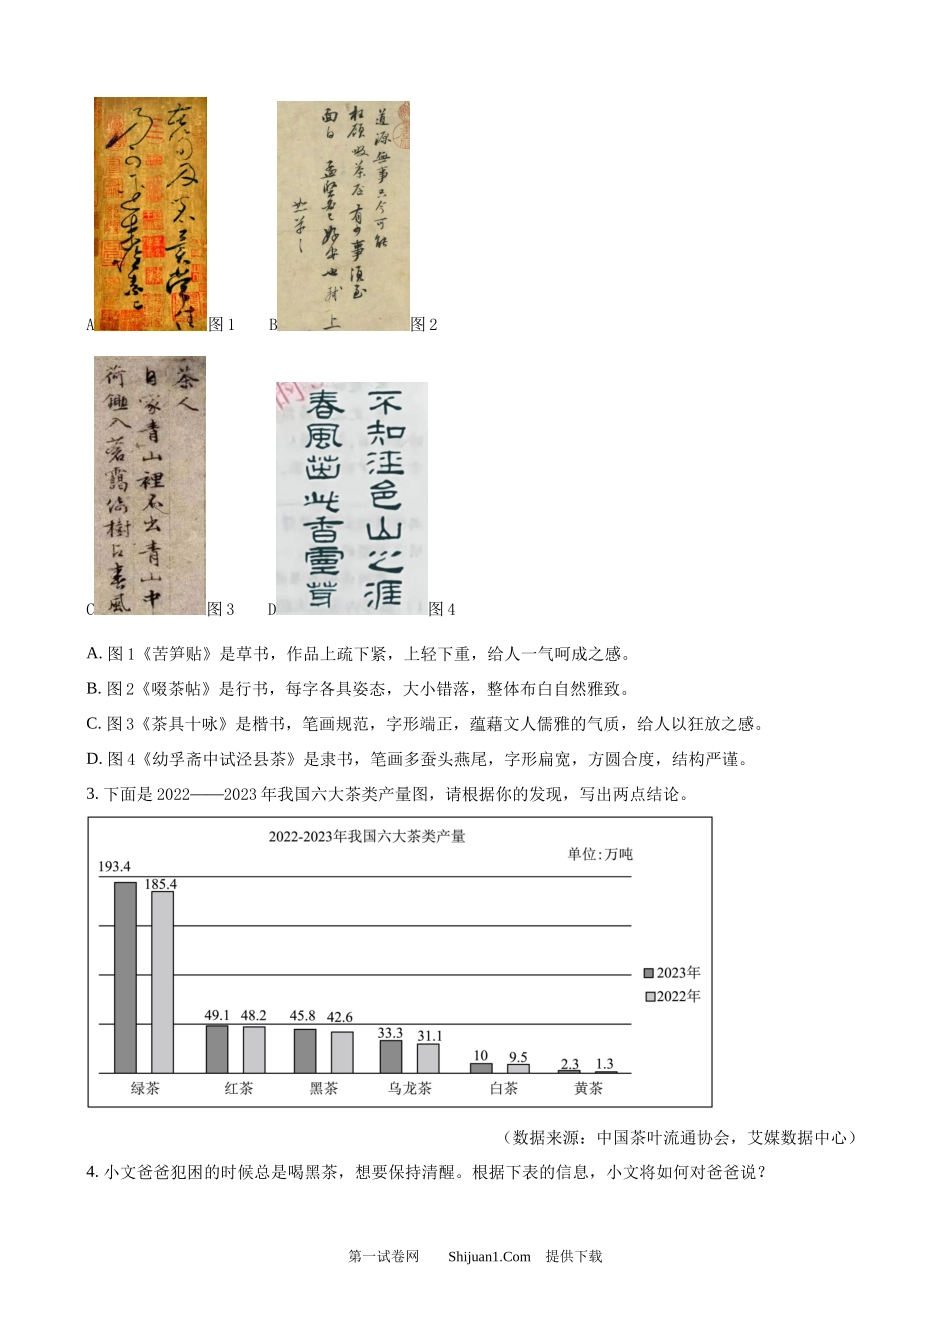 道源無事只今可能
枉顧啜茶否有少事須至
面白 孟堅必已好安也 軾 上
恕草草
A 图1 B 图2
茶人
自家青山裡不出青山中
不知泾色山之涯
春風茁此香靈芽
C 图3 D 图4
A. 图1《苦笋贴》是草书，作品上疏下紧，上轻下重，给人一气呵成之感。
B. 图2《啜茶帖》是行书，每字各具姿态，大小错落，整体布白自然雅致。
C. 图3《茶具十咏》是楷书，笔画规范，字形端正，蕴藉文人儒雅的气质，给人以狂放之感。
D. 图4《幼孚斋中试泾县茶》是隶书，笔画多蚕头燕尾，字形扁宽，方圆合度，结构严谨。
3. 下面是 2022——2023 年我国六大茶类产量图，请根据你的发现，写出两点结论。
2022-2023年我国六大茶类产量
单位:万吨
193.4
185.4
49.1 48.2 45.8 42.6
33.3 31.1
10 9.5 2.3 1.3
2023年
2022年
绿茶 红茶 黑茶 乌龙茶 白茶 黄茶
（数据来源：中国茶叶流通协会，艾媒数据中心）
4. 小文爸爸犯困的时候总是喝黑茶，想要保持清醒。根据下表的信息，小文将如何对爸爸说？
第一试卷网 Shijuan1.Com 提供下载